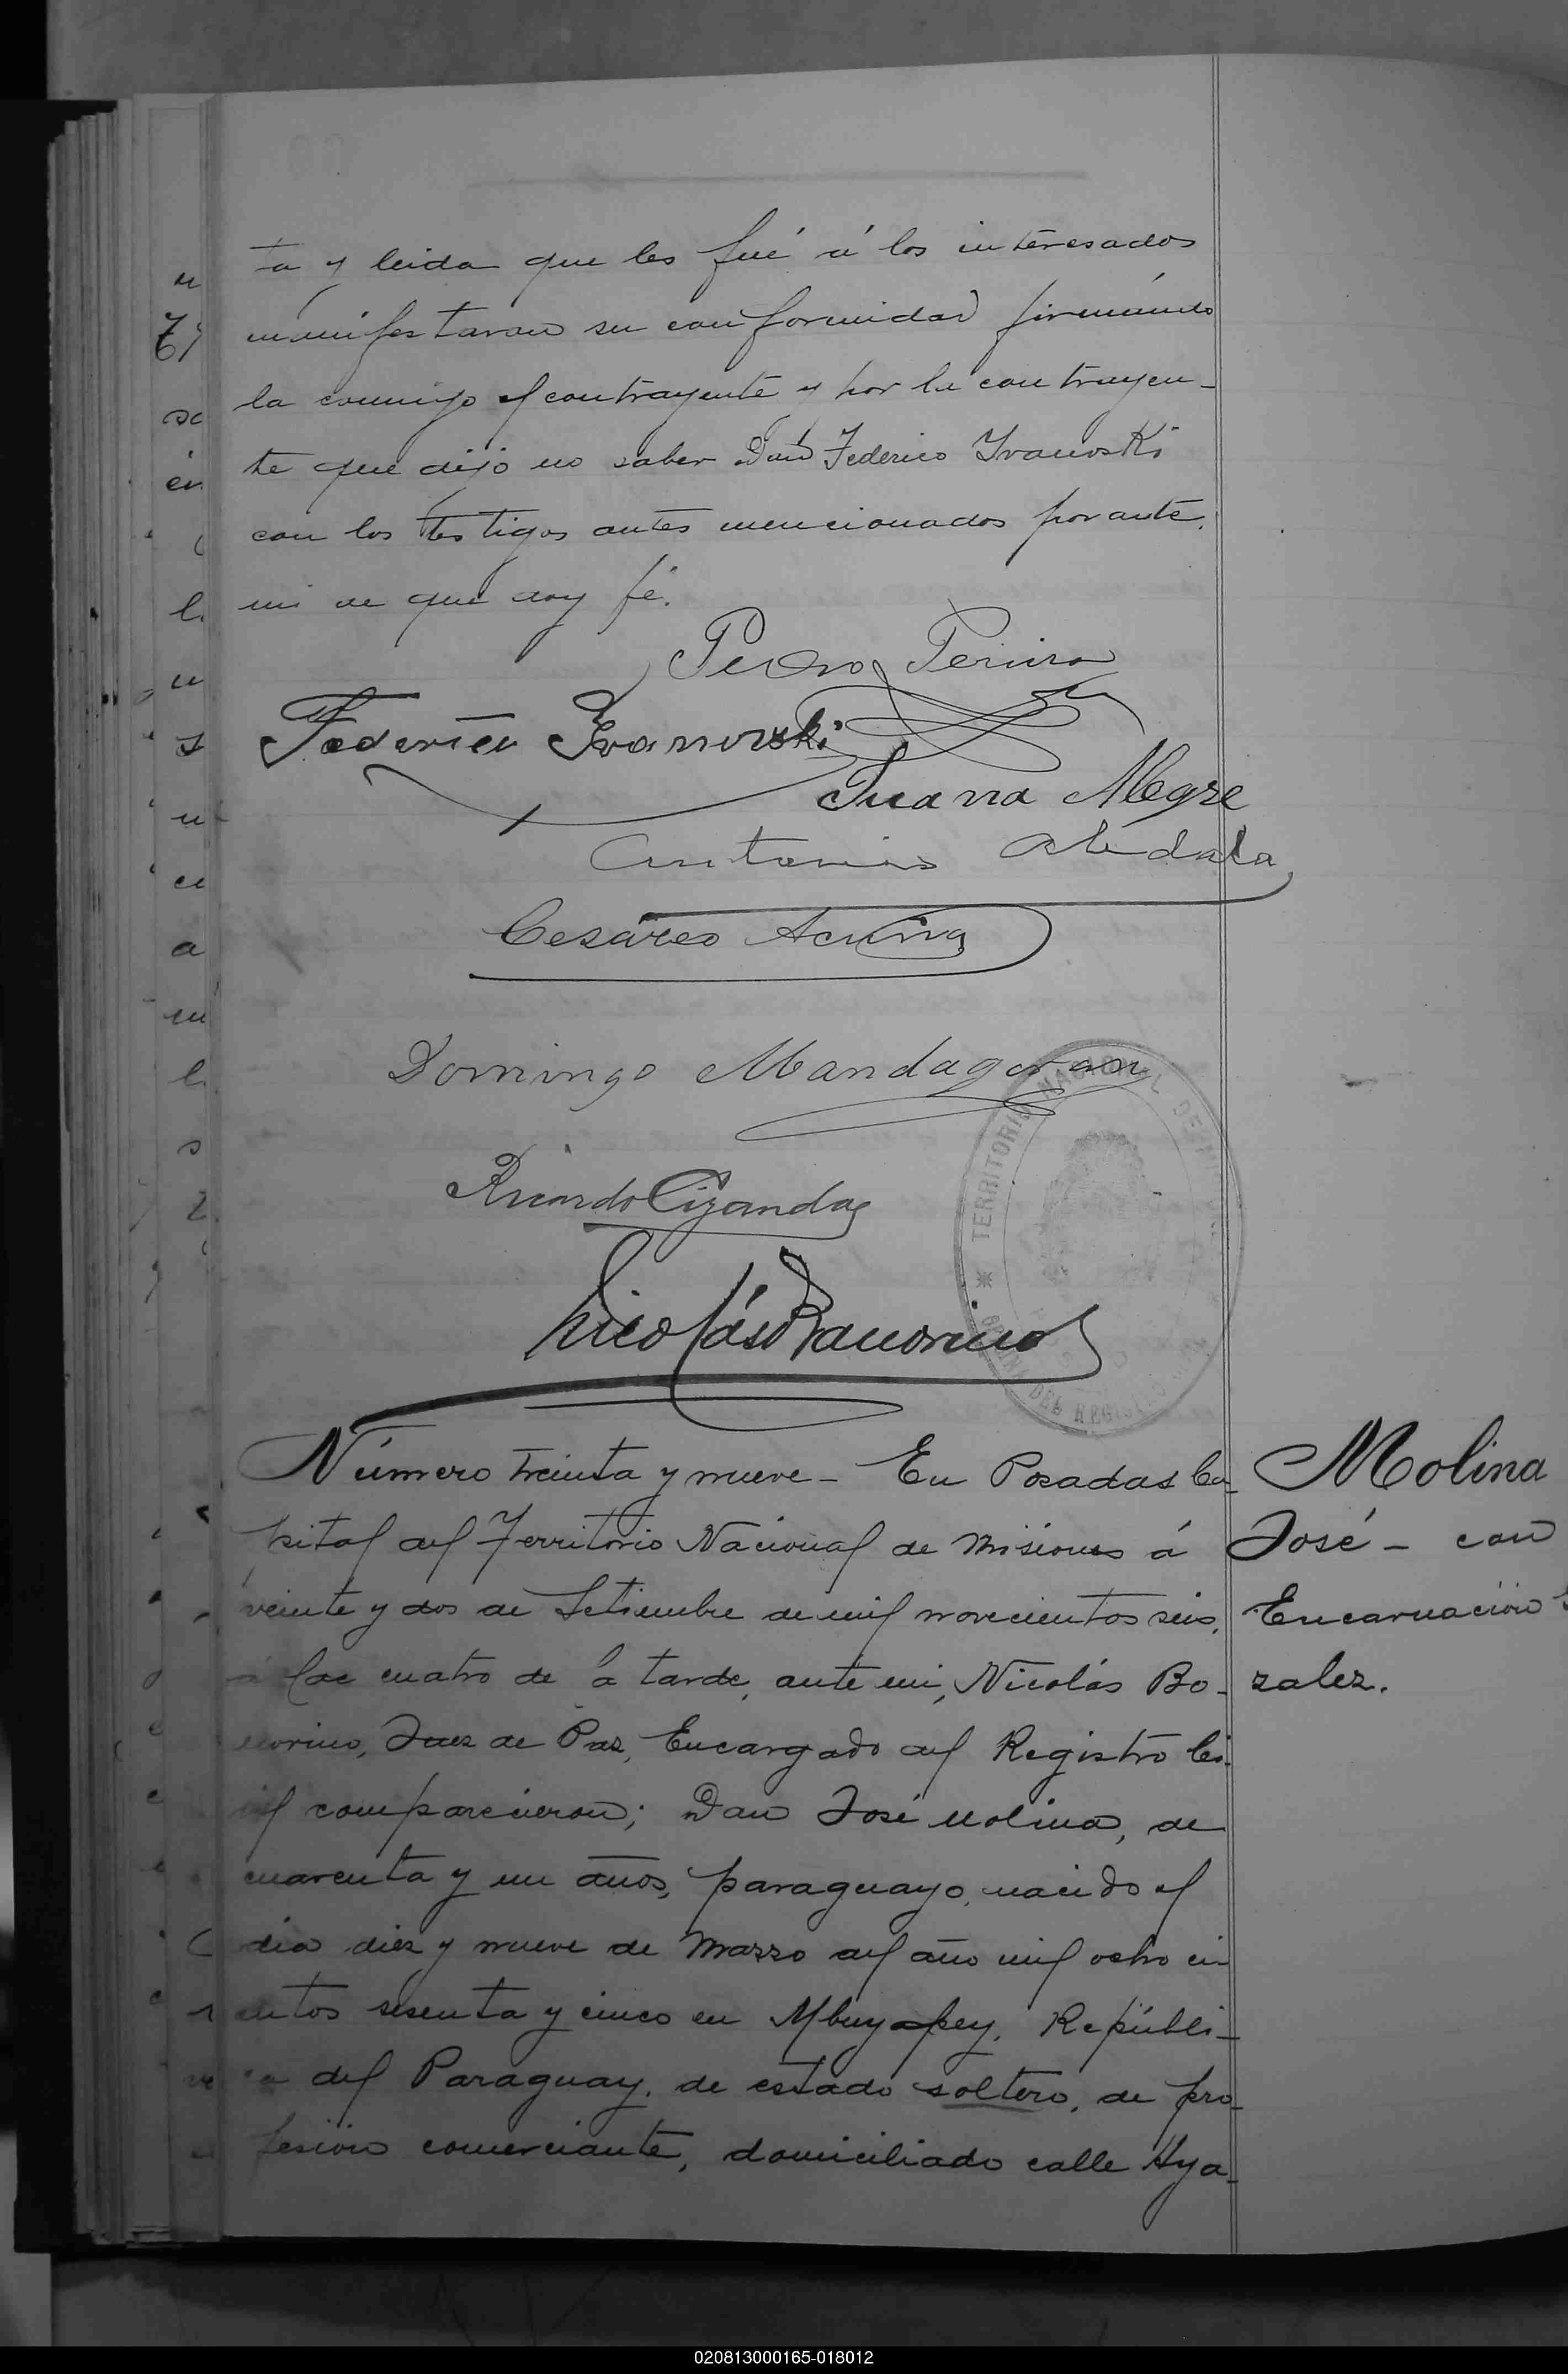 ta y leida que les fué á los interesados
manifestaron su conformidad firmando
la conmigo el contrayente y por la contrayen-
te que dijo no saber Don Federico Ivanoski
con los testigos antes mencionados por ante
mi de que doy fé.
Pedro Pereira
Federico Ivanowski
Juana Alegre
Antonio
Cesáreo Acuña
Domingo Mandagaran
Ricardo Ciganda
Nicolás Bonorino
TERRITORIO NACIONAL DE
OFICINA DEL REGISTRO
Número treinta y nueve - En Posadas Ca-
pital del Territorio Nacional de Misiones á
veinte y dos de Setiembre de mil novecientos seis,
á las cuatro de la tarde, ante mi, Nicolás Bo-
norino, Juez de Paz, Encargado del Registro Ci-
vil comparecieron; Don José Molina, de
cuarenta y un años, paraguayo, nacido el
dia diez y nueve de Marzo del año mil ocho ci
entos sesenta y cinco en Mbuyapey, Repúbli-
ca del Paraguay, de estado soltero, de pro-
fesión comerciante, domiciliado calle Aya-
Molina
José - con
Encarnación
zalez.
020813000165-018012